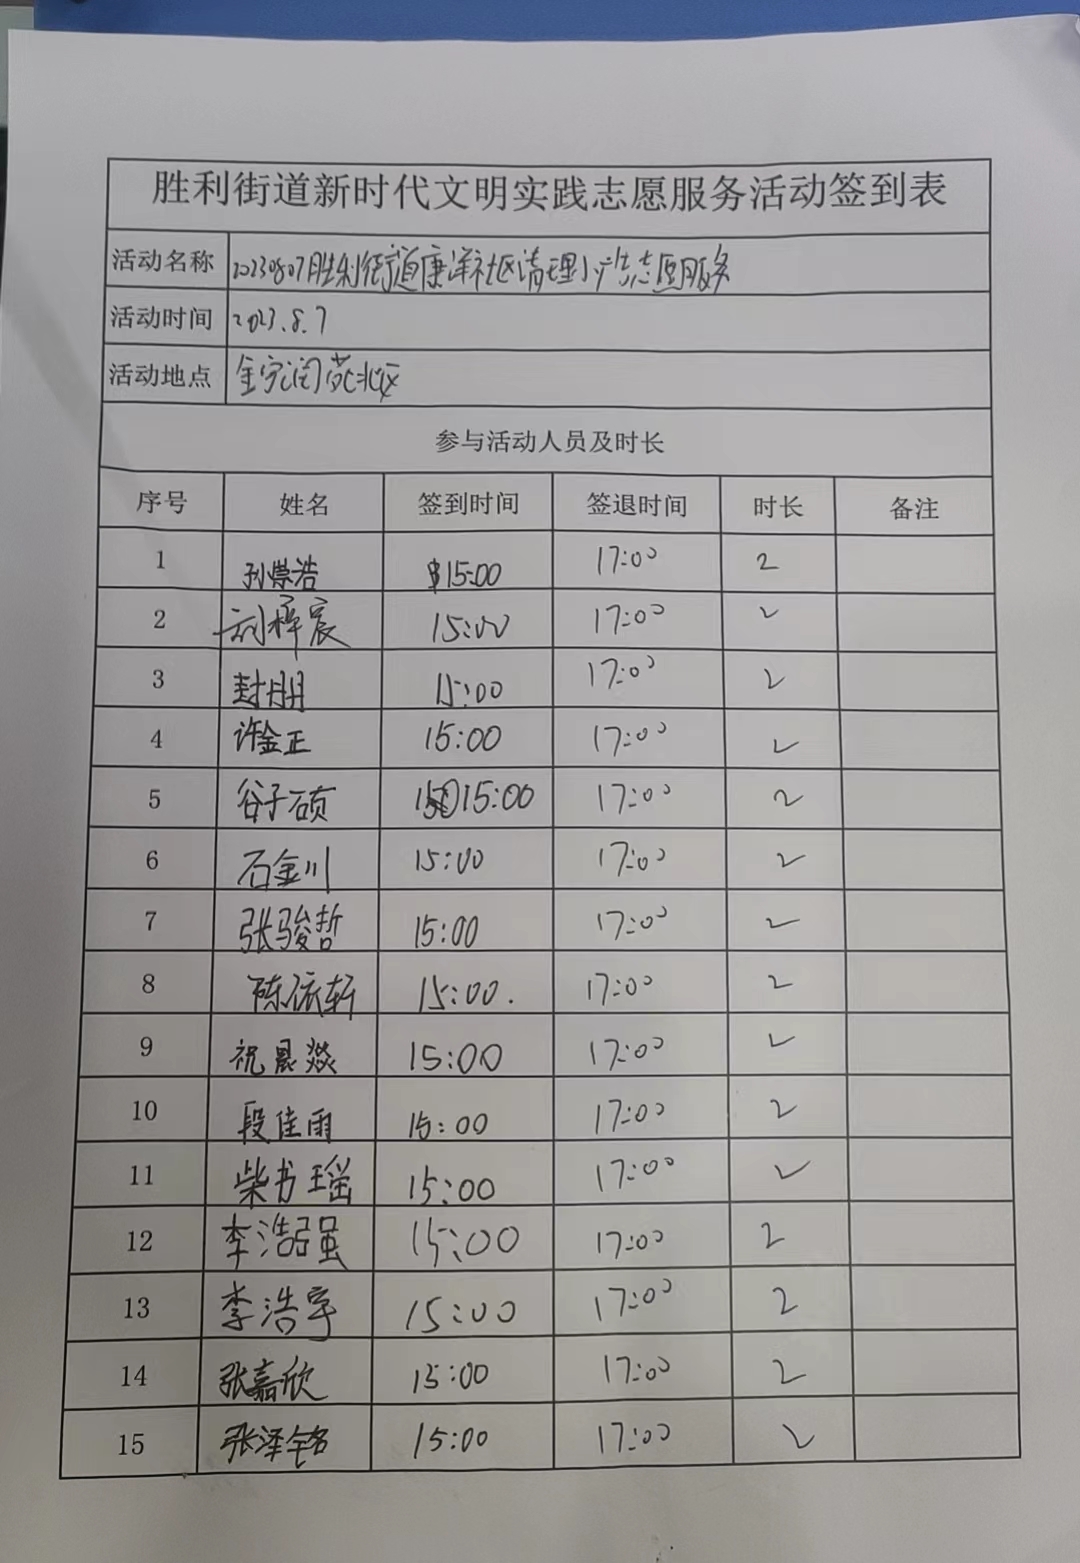 胜利街道新时代文明实践志愿服务活动签到表
活动名称 20230807胜利街道康洋社区清理小广告志愿服务
活动时间 2023.8.7
活动地点 金宇润苑北区
参与活动人员及时长
序号 姓名 签到时间 签退时间 时长 备注
1 孙崇浩 15:00 17:00 2
2 刘梓宸 15:00 17:00 2
3 封朋 15:00 17:00 2
4 许金正 15:00 17:00 2
5 谷子硕 15:00 17:00 2
6 石金川 15:00 17:00 2
7 张骏哲 15:00 17:00 2
8 陈依轩 15:00. 17:00 2
9 祝晨燚 15:00 17:00 2
10 段佳雨 15:00 17:00 2
11 柴书瑶 15:00 17:00 2
12 李浩强 15:00 17:00 2
13 李浩宇 15:00 17:00 2
14 张嘉欣 15:00 17:00 2
15 张泽铭 15:00 17:00 2